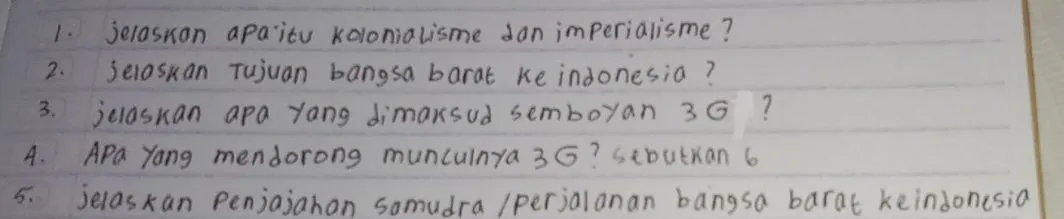 1. jelaskan apa itu kolonialisme dan imperialisme ?
2. Jelaskan Tujuan bangsa barat ke indonesia ?
3. jelaskan apa yang dimaksud semboyan 3 G ?
4. Apa yang mendorong munculnya 3 G ? sebutkan 6
5. jelaskan Penjajahan samudra / perjalanan bangsa barat keindonesia